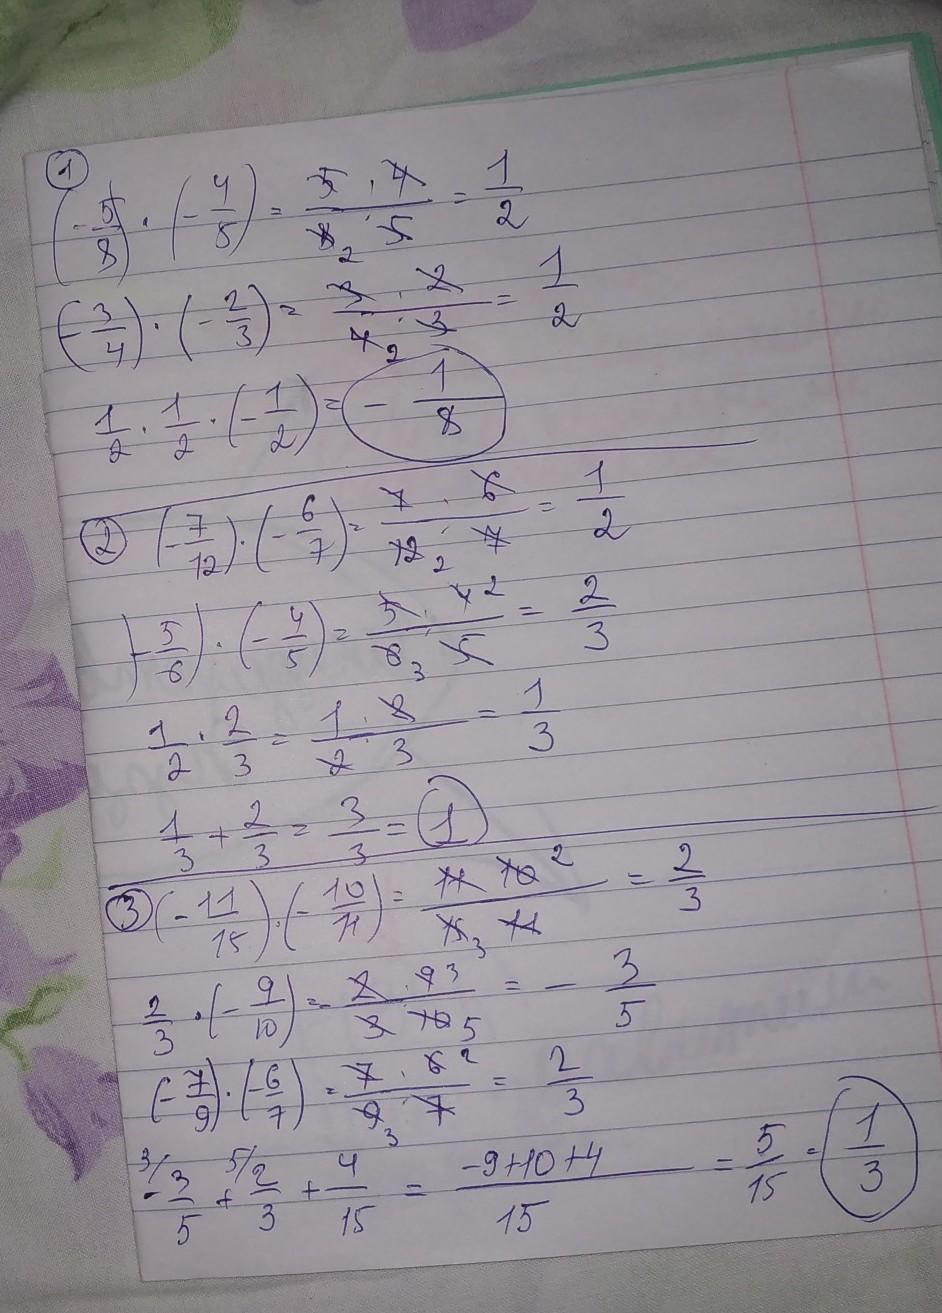 ①
(-5/8) · (-4/5) = 5 · 4 / 8 2 · 5 = 1/2
(-3/4) · (-2/3) = 3 · 2 / 4 2 · 3 = 1/2
1/2 · 1/2 · (-1/2) = -1/8
② (-7/12) · (-6/7) = 7 · 6 / 12 2 · 7 = 1/2
(-5/6) · (-4/5) = 5 · 4 2 / 6 3 · 5 = 2/3
1/2 · 2/3 = 1 · 2 / 2 · 3 = 1/3
1/3 + 2/3 = 3/3 = 1
③ (-11/15) · (-10/11) = 11 10 2 / 15 3 11 = 2/3
2/3 · (-9/10) = - 2 · 9 3 / 3 10 5 = - 3/5
(-7/9) · (-6/7) = 7 · 6 2 / 9 3 · 7 = 2/3
3/ -3/5 + 5/ 2/3 + 4/15 = -9+10+4 / 15 = 5/15 = 1/3